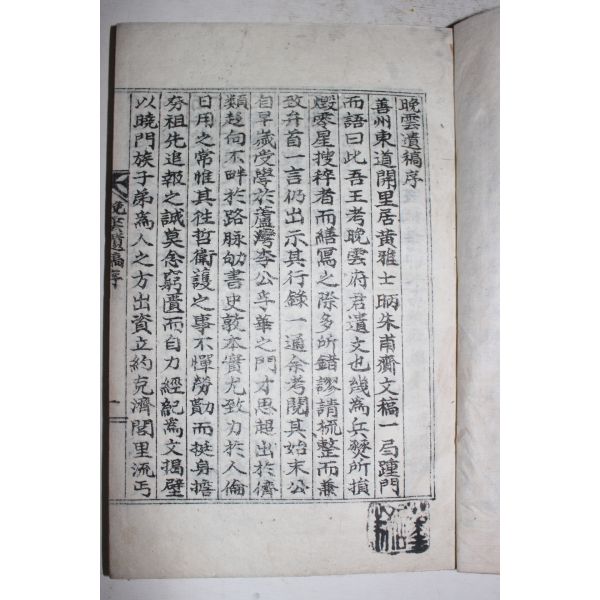 晚雲遺稿序
善州東道開里居黃雅士昞朱甫齎文稿一局踵門
而語曰此吾王考晚雲府君遺文也幾爲兵燹所損
燬零星搜稡者而繕寫之際多所錯謬請梳整而兼
致弁首一言仍出示其行錄一通余考閱其始末公
自早歲受學於蘆灣李公華之門才思超出於儕
類超向不畔於路脉劬書史敦本實尤致力於人倫
日用之常惟其往哲衛護之事不憚勞勩而挺身擔
夯祖先追報之誠莫念窮匱而自力經紀爲文揭壁
以曉門族子弟爲人之方出資立約克濟閭里流丐
晚雲遺稿序
一